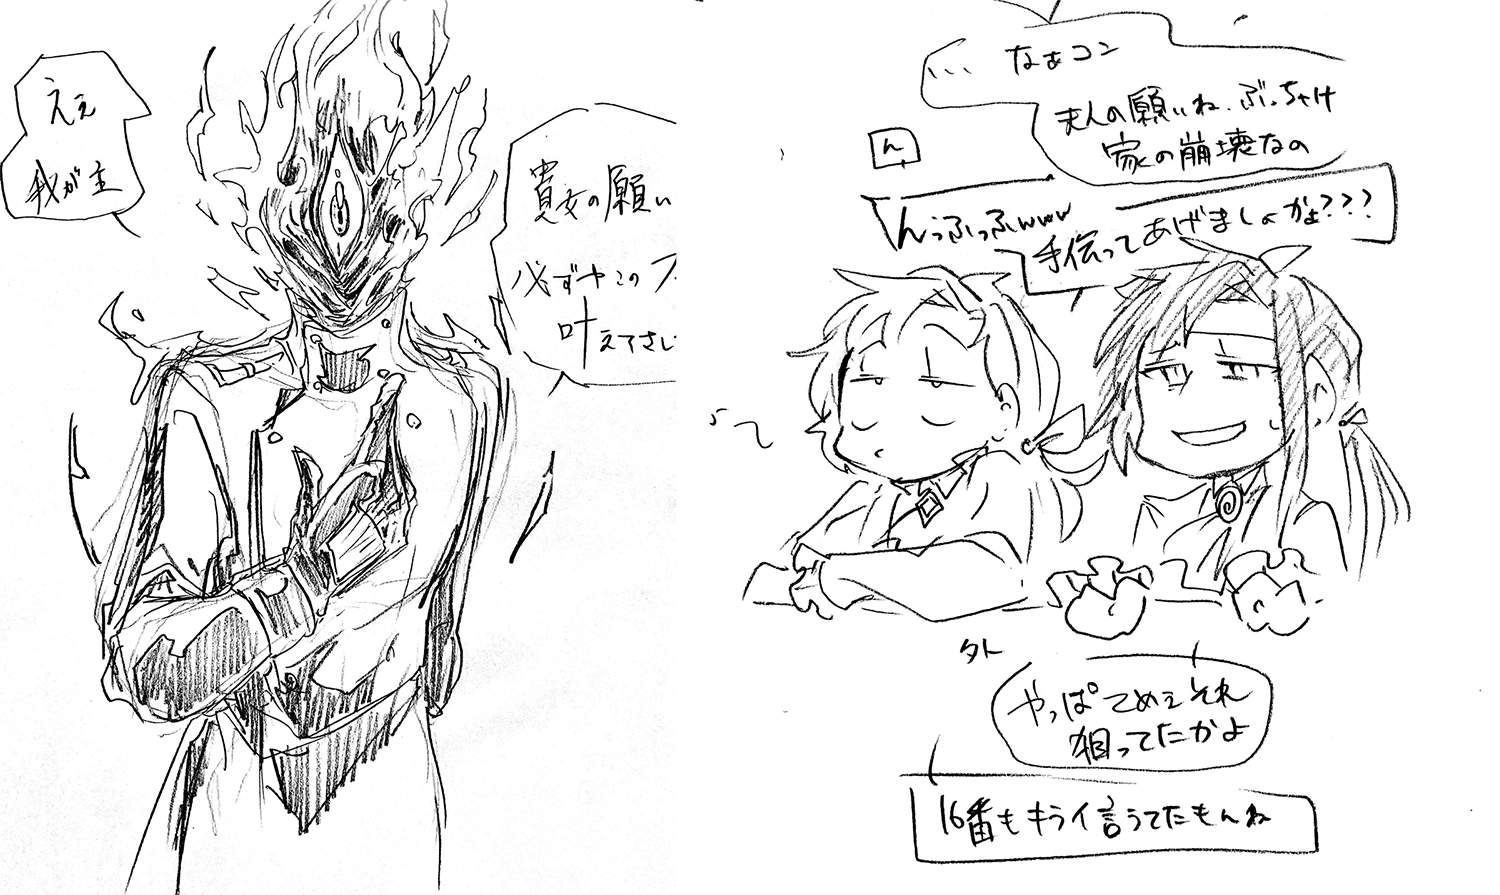 ええ
我が主
貴女の願い
必ずやこの
叶えてさし
なぁコン
…
夫人の願いね、ぶっちゃけ
家の崩壊なの
ん
んっふっふwww
手伝ってあげましょかぁ???
外
やっぱてめぇそれ
狙ってたかよ
16番もキライ言うてたもんね